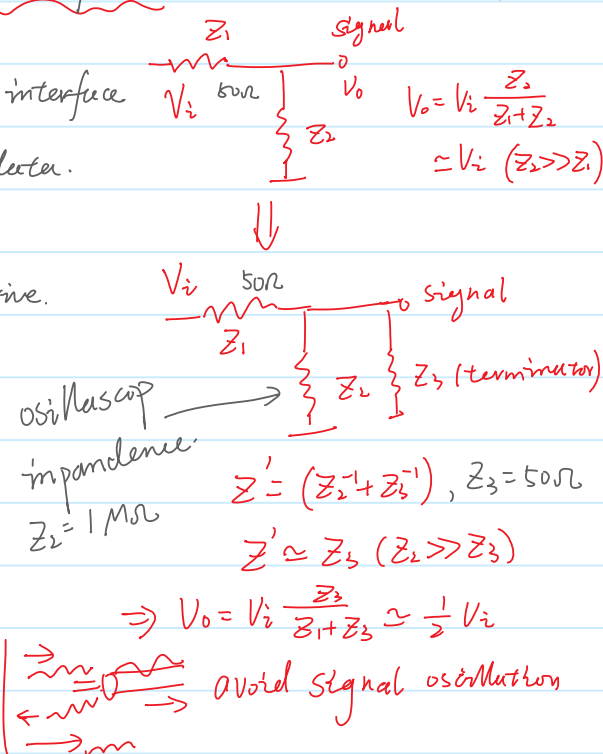 Z₁ signal
interface Vi 50Ω Vo
Z₂
Vo = Vi Z₂/(Z₁+Z₂)
≃ Vi (Z₂>>Z₁)
⇓
Vi 50Ω signal
Z₁ Z₂ Z₃ (terminator)
osillascop
inpandence.
Z₂ = 1MΩ
Z' = (Z₂⁻¹+Z₃⁻¹), Z₃=50Ω
Z' ≃ Z₃ (Z₂>>Z₃)
⇒ Vo = Vi Z₃/(Z₁+Z₃) ≃ 1/2 Vi
avoid signal oscillation